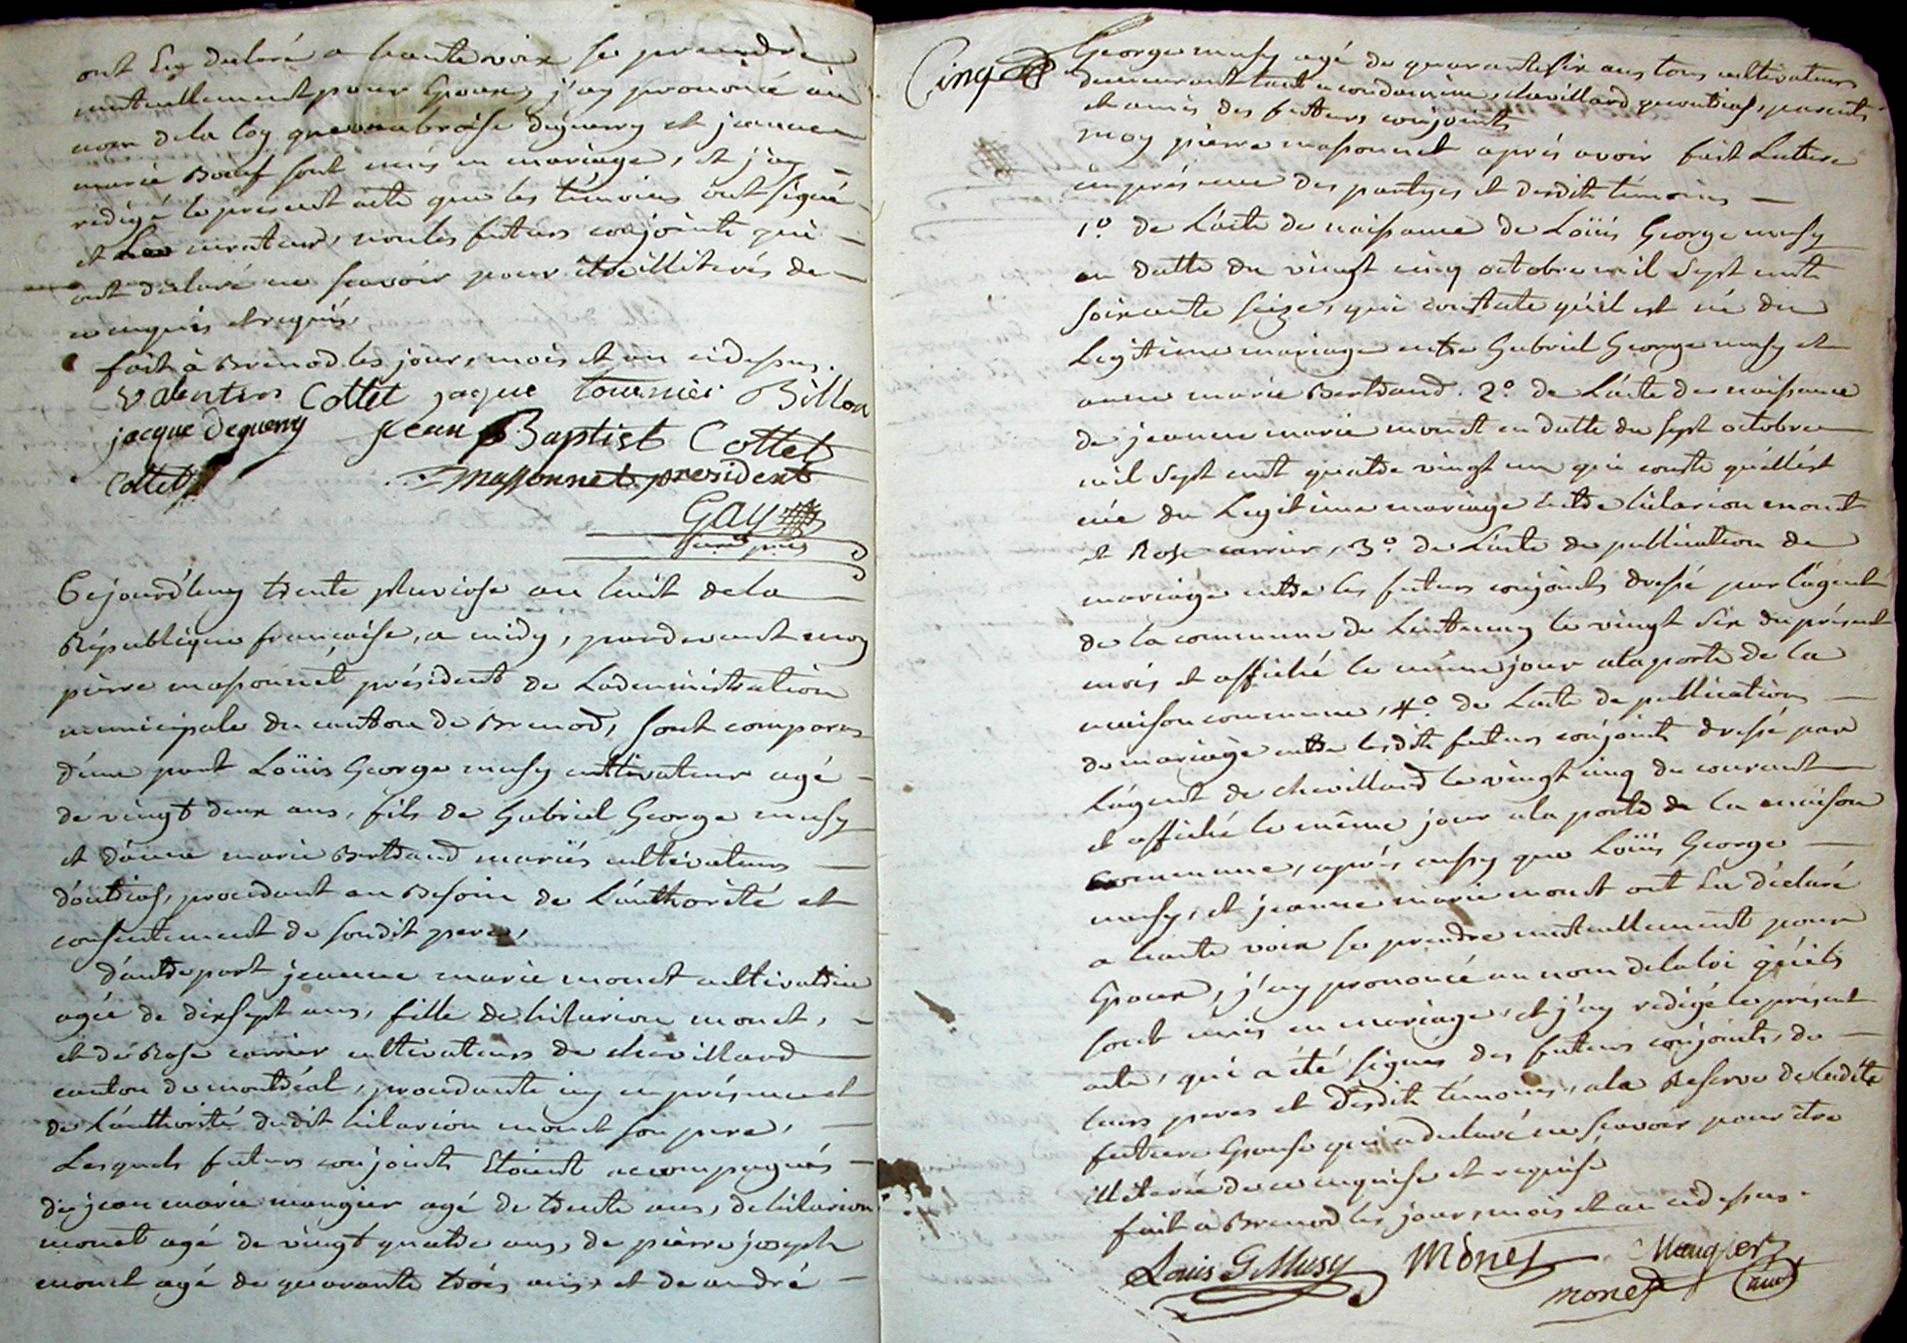 ont Eu declaré a hautevoix se prendre
mutuellement pour Epoux, j'ay prononcé au
nom de la loy que ambroise Degueny et jeanne
marie Boeuf sont unis en mariage, et j'ay
redigé le present acte que les témoins ont signé
et curateur, non les futurs conjoints qui
ont declaré ne scavoir pour être illiterés de
ce enquis et requis
fait à Brenod les jour, mois et an cidessus.
Valentin Cottet jaque Tournier Billon
jacque Degueny Jean Baptist Cottet
Cottet massonnet president
Gay
Cejourd'huy trente pluviose an huit de la
République française, a midy, pardevant moy
pierre massonnet président de Ladministration
municipale du canton de Brenod, sont comparus
d'une part Loüis George musy cultivateur agé
de vingt deux ans, fils de Gabriel George musy
et d'anne marie Bertrand mariés cultivateurs
d'outriaf, procedant au Besoin de L'authorité et
consentement de sondit pere,
d'autre part jeanne marie monet cultivatrice
agée de dixsept ans, fille de hilarion monet,
et de Rose carrier cultivateurs de chevillard
canton de montréal, procedante icy en présence et
de L'authorité dudit hilarion monet son pere,
Lesquels futurs conjoints Etoient accompagnés
de jean marie maugier agé de trente ans, de hilarion
monet agé de vingt quatre ans, de pierre joseph
monet agé de quarante trois ans, et de andré
Cinq
George musy agé de quarantesix ans tous cultivateurs
demeurant tant a condamine, chevillard qu'outriaf, parents
et amis des futturs conjoints
moy pierre massonnet aprés avoir fait Lecture
en présence des partyes et desdits témoins
1.° de L'acte de naissance de Loüis George musy
en datte du vingt cinq octobre mil sept cent
soixante seize, qui constate qu'il est né du
Legitime mariage entre Gabriel George musy et
anne marie Bertrand. 2.° de L'acte de naissance
de jeanne marie monet en datte du sept octobre
mil sept cent quatre vingt un qui conste qu'elle est
née du Legitime mariage entre hilarion monet
et Rose carrier, 3.° de L'acte de publication de
mariage entre les futurs conjoints dressé par l'agent
de la commune de Lantenay le vingt six du présent
mois et affiché le même jour a la porte de la
maison commune, 4.° de L'acte de publication
de mariage entre lesdits futurs conjoints dressé par
L'agent de chevillard le vingt cinq du courant
et affiché le même jour a la porte de la maison
commune, aprés aussy que Loüis George
musy, et jeanne marie monet ont Eu déclaré
a haute voix se prendre mutuellement pour
Epoux, j'ay prononcé au nom de la loi qu'ils
sont unis en mariage, et j'ay redigé le présent
acte, qui a été signé des futurs conjoints, de
leurs peres et desdits témoins, a la Reserve de ladite
future Epouse qui a declaré ne scavoir pour être
illiterée de ce enquise et requise
fait a Brenod les jour, mois et an cidessus.
Louis G Musy Monet Maugier
monet